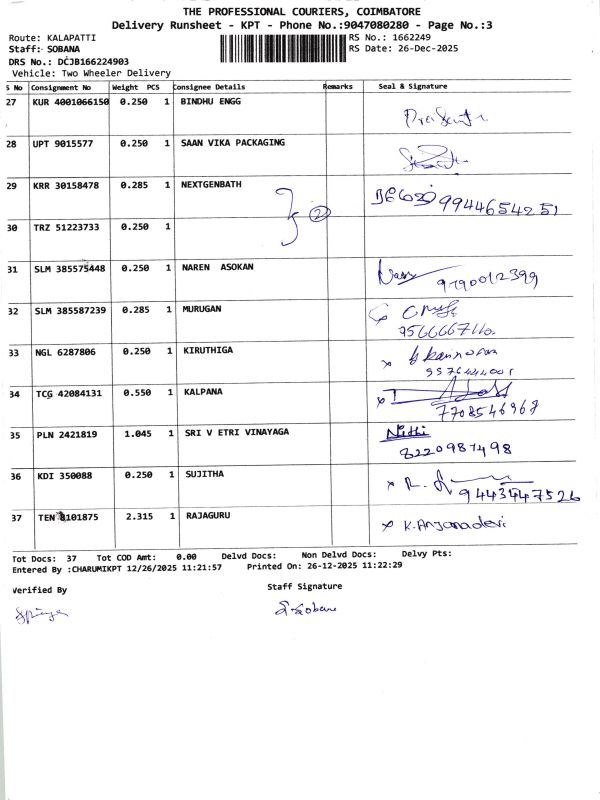 THE PROFESSIONAL COURIERS, COIMBATORE
Delivery Runsheet - KPT - Phone No.:9047080280 - Page No.:3
Route: KALAPATTI RS No.: 1662249
Staff: SOBANA RS Date: 26-Dec-2025
DRS No.: DCJB166224903
Vehicle: Two Wheeler Delivery
S No Consignment No Weight PCS Consignee Details Remarks Seal & Signature
27 KUR 4001066150 0.250 1 BINDHU ENGG
28 UPT 9015577 0.250 1 SAAN VIKA PACKAGING
29 KRR 30158478 0.285 1 NEXTGENBATH 9944654251
2
30 TRZ 51223733 0.250 1
31 SLM 385575448 0.250 1 NAREN ASOKAN
9790012399
32 SLM 385587239 0.285 1 MURUGAN
33 NGL 6287806 0.250 1 KIRUTHIGA
34 TCG 42084131 0.550 1 KALPANA
7708546968
35 PLN 2421819 1.045 1 SRI V ETRI VINAYAGA Nithi
8220987498
36 KDI 350088 0.250 1 SUJITHA
9443447526
37 TEN 8101875 2.315 1 RAJAGURU x K.Anjanadevi
Tot Docs: 37 Tot COD Amt: 0.00 Delvd Docs: Non Delvd Docs: Delvy Pts:
Entered By :CHARUMIKPT 12/26/2025 11:21:57 Printed On: 26-12-2025 11:22:29
Verified By Staff Signature
S.Sobana